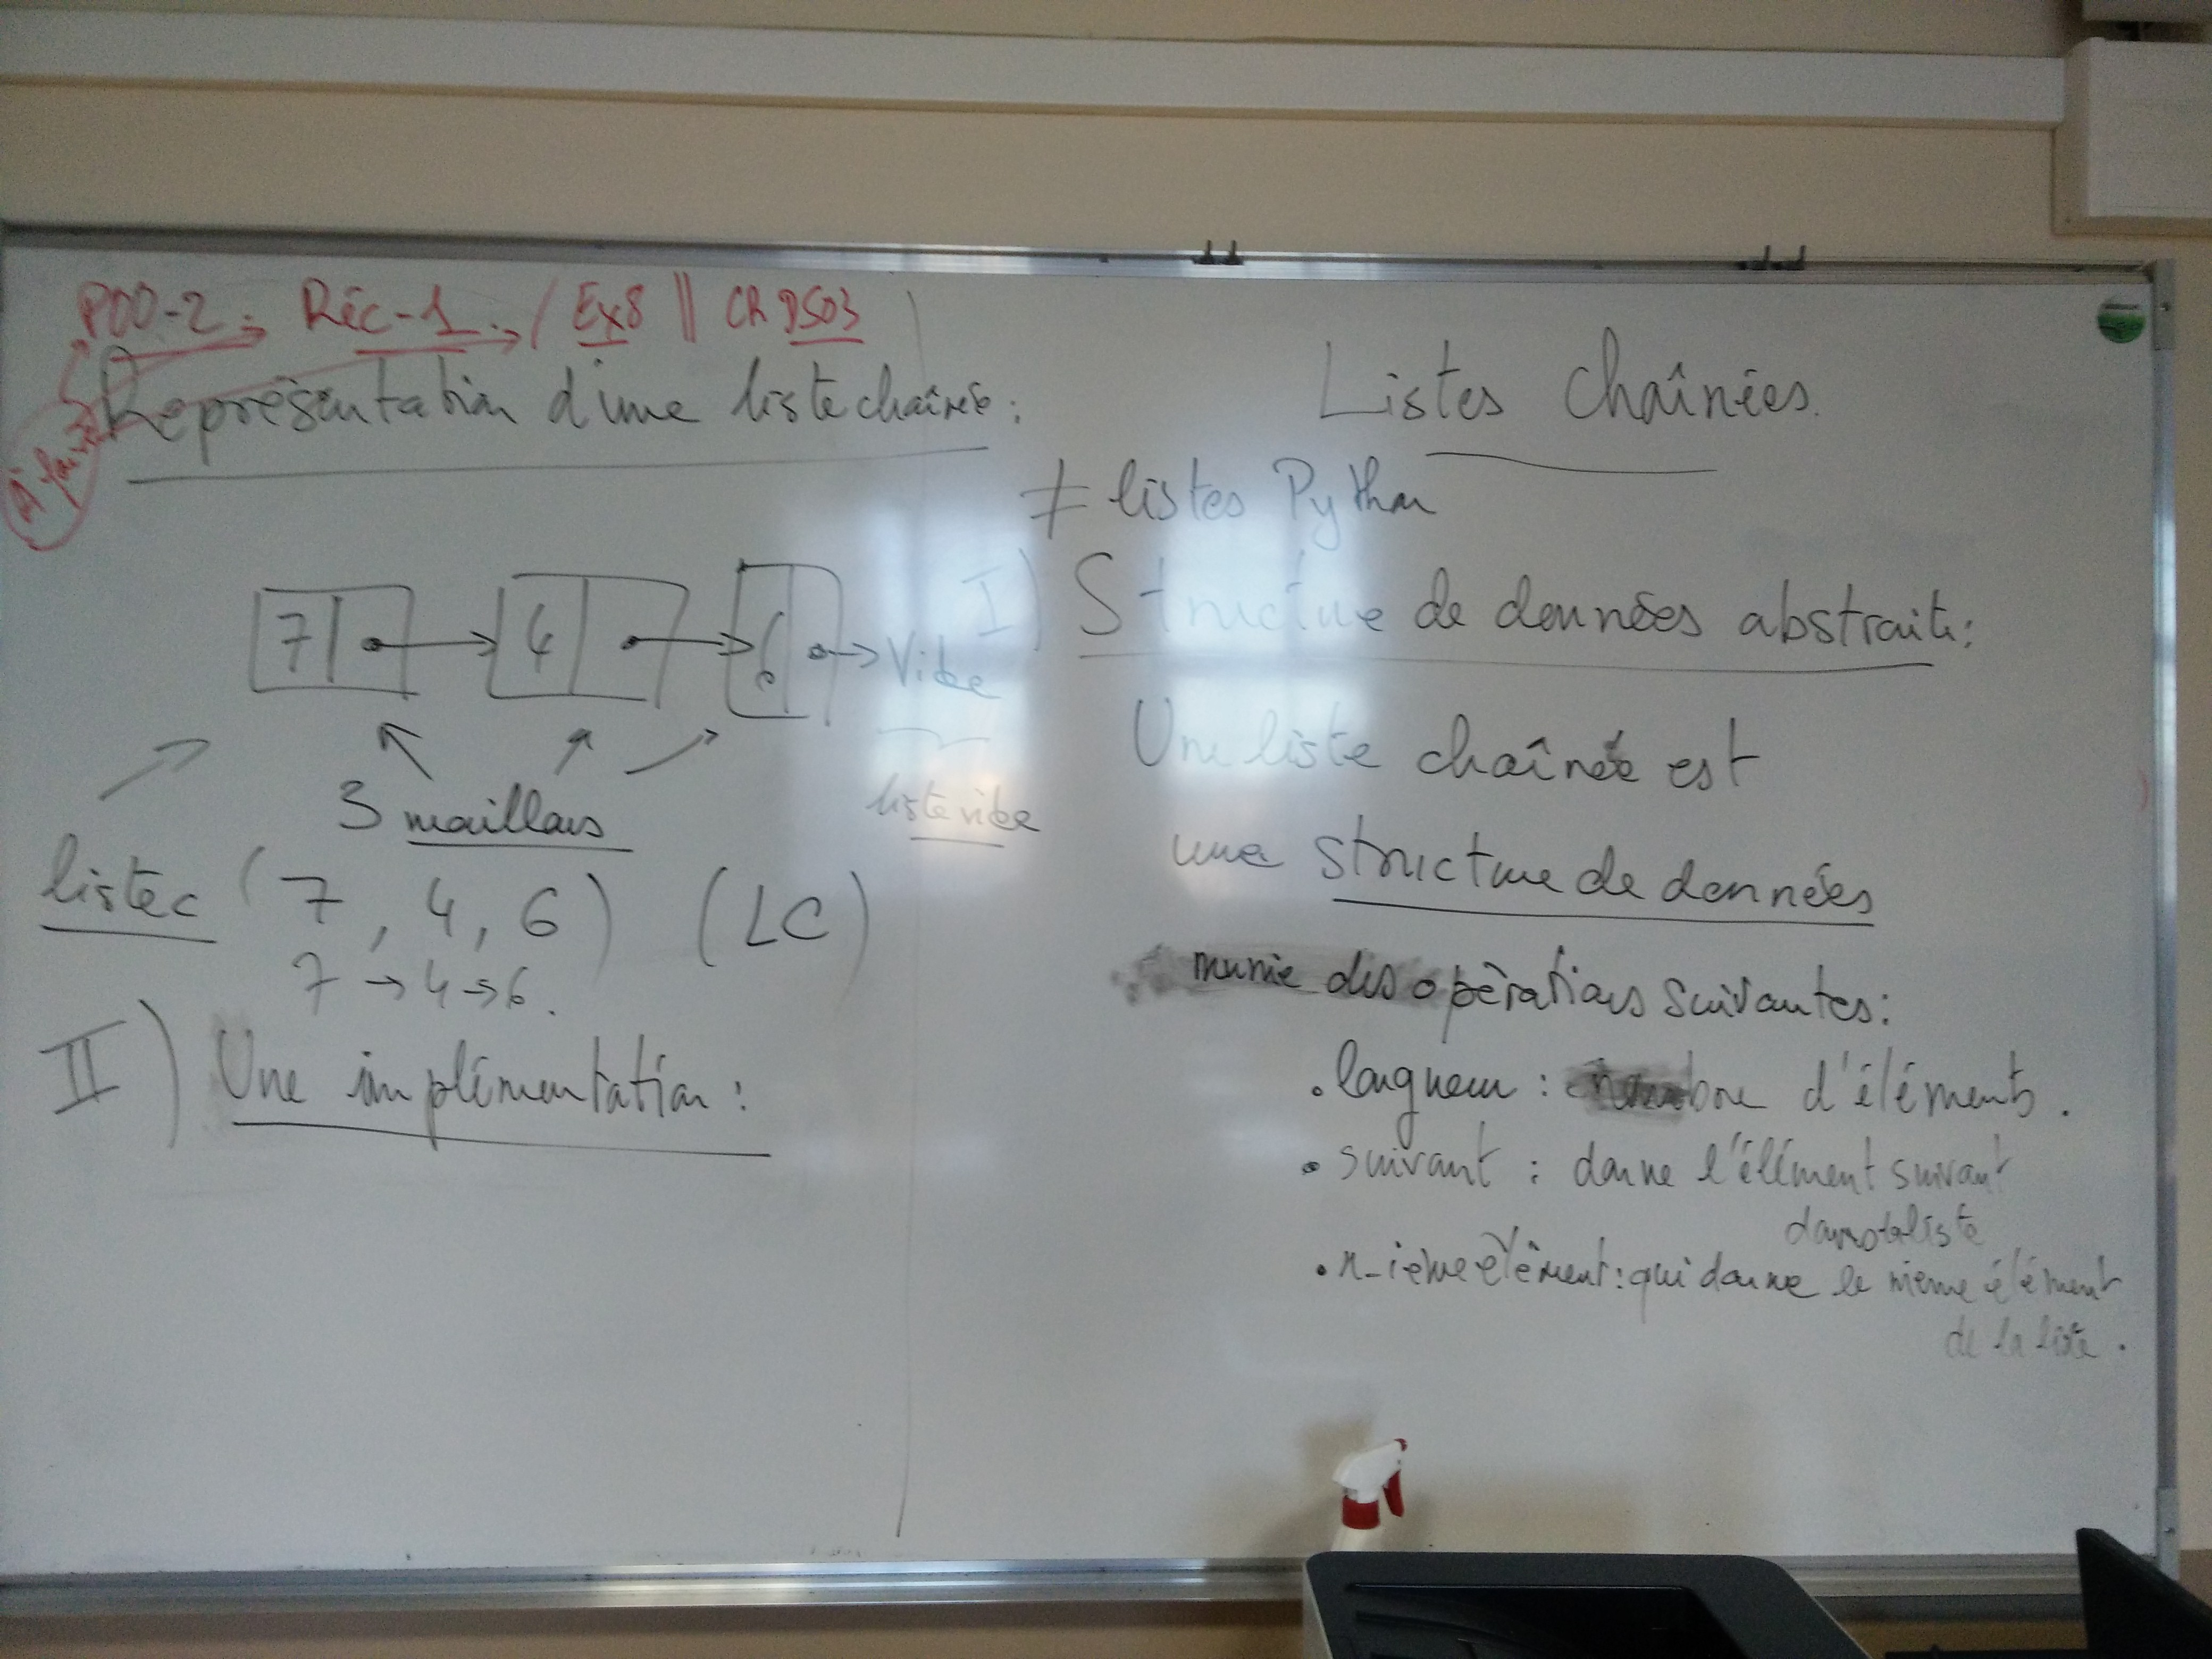 POO-2 → Réc-1 → / Ex8 || CR DS03
À faire
Représentation d'une liste chaînée :
7 4 6 Vide
3 maillons
liste vide
listec (7, 4, 6) (LC)
7 → 4 → 6.
II) Une implémentation :
Listes chaînées.
≠ listes Python
I) Structure de données abstraite :
Une liste chaînée est
une structure de données
munie des opérations suivantes :
• longueur : nombre d'éléments.
• suivant : donne l'élément suivant
dans la liste
• n-ième élément : qui donne le nième élément
de la liste.